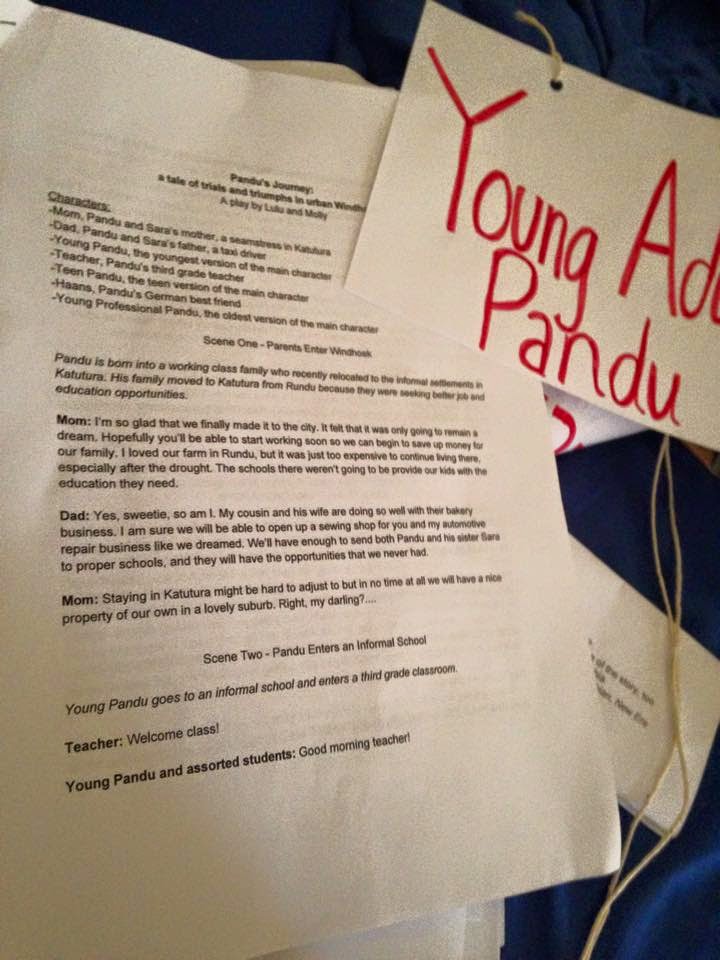 Pandu's Journey:
a tale of trials and triumphs in urban Windh
A play by Lulu and Molly
Characters:
-Mom, Pandu and Sara's mother, a seamstress in Katutura
-Dad, Pandu and Sara's father, a taxi driver
-Young Pandu, the youngest version of the main character
-Teacher, Pandu's third grade teacher
-Teen Pandu, the teen version of the main character
-Haans, Pandu's German best friend
-Young Professional Pandu, the oldest version of the main character
Scene One - Parents Enter Windhoek
Pandu is born into a working class family who recently relocated to the informal settlements in
Katutura. His family moved to Katutura from Rundu because they were seeking better job and
education opportunities.
Mom: I'm so glad that we finally made it to the city. It felt that it was only going to remain a
dream. Hopefully you'll be able to start working soon so we can begin to save up money for
our family. I loved our farm in Rundu, but it was just too expensive to continue living there,
especially after the drought. The schools there weren't going to be provide our kids with the
education they need.
Dad: Yes, sweetie, so am I. My cousin and his wife are doing so well with their bakery
business. I am sure we will be able to open up a sewing shop for you and my automotive
repair business like we dreamed. We'll have enough to send both Pandu and his sister Sara
to proper schools, and they will have the opportunities that we never had.
Mom: Staying in Katutura might be hard to adjust to but in no time at all we will have a nice
property of our own in a lovely suburb. Right, my darling?....
Scene Two - Pandu Enters an Informal School
Young Pandu goes to an informal school and enters a third grade classroom.
Teacher: Welcome class!
Young Pandu and assorted students: Good morning teacher!
Young Ad
Pandu
of the story, too
New Era